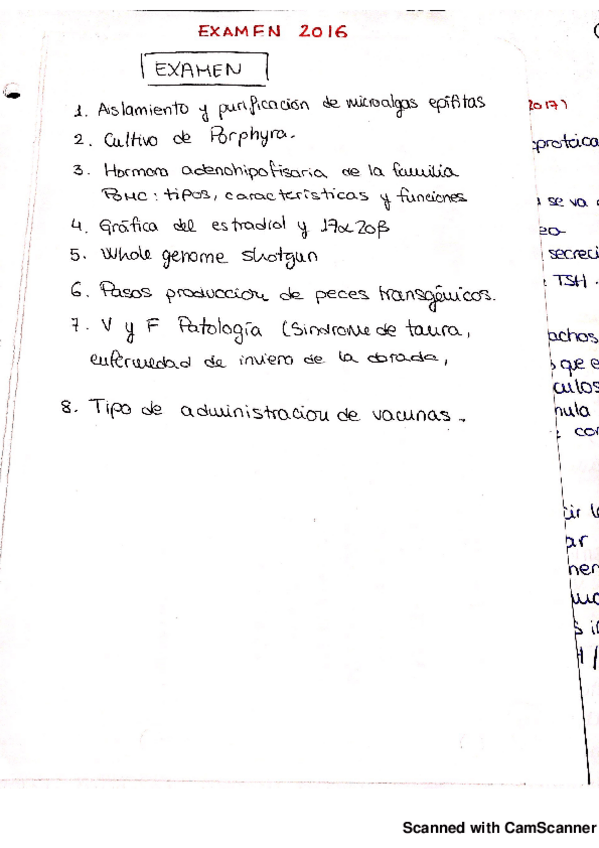 EXAMEN 2016
EXAMEN
1. Aislamiento y purificación de microalgas epífitas
2. Cultivo de Porphyra.
3. Hormona adenohipofisaria de la familia
POMC: tipos, características y funciones
4. Gráfica del estradiol y 17α20β
5. Whole genome shotgun
6. Pasos produccion de peces transgénicos.
7. V y F Patología (Sindrome de taura,
enfermedad de inviero de la dorada,
8. Tipo de administracion de vacunas.
2017)
proteica
se va
secreci
TSH.
achos
que e
culos
nula
cor
ir l
ar
her
Scanned with CamScanner